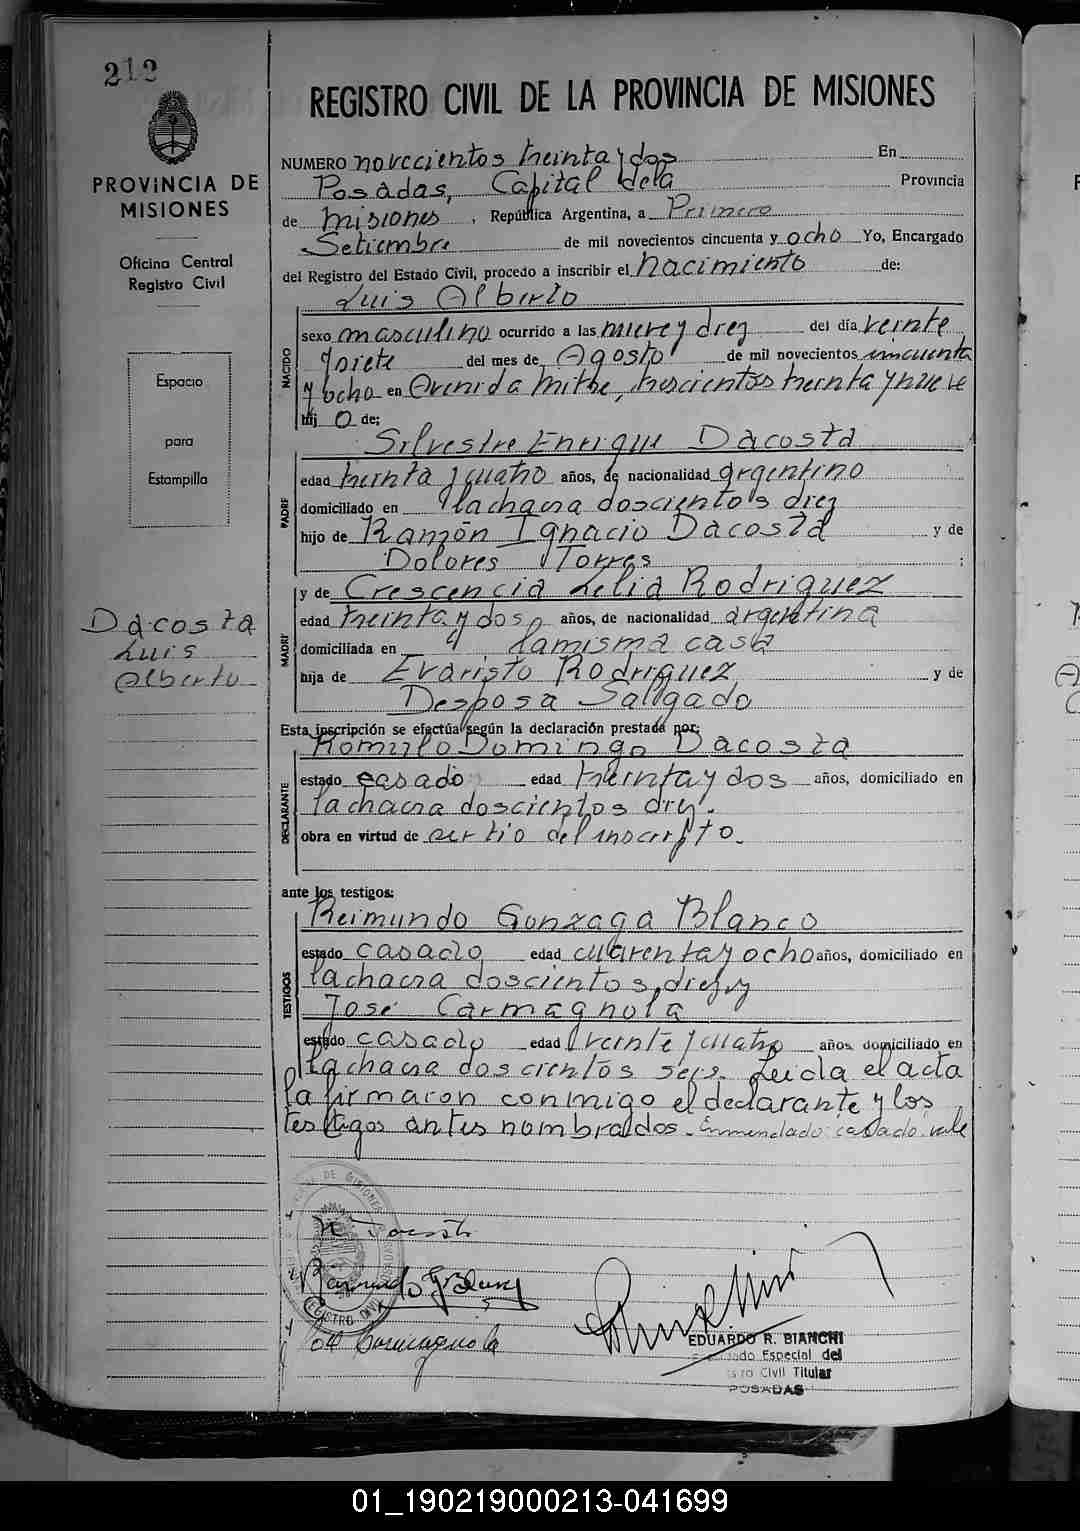 212
PROVINCIA DE
MISIONES
Oficina Central
Registro Civil
Espacio
para
Estampilla
Dacosta
Luis
Alberto
REGISTRO CIVIL DE LA PROVINCIA DE MISIONES
NUMERO novecientos treinta y dos En
Posadas, Capital de la Provincia
de Misiones, República Argentina, a Primero
Setiembre de mil novecientos cincuenta y ocho Yo, Encargado
del Registro del Estado Civil, procedo a inscribir el nacimiento de:
Luis Alberto
NACIDO
sexo masculino ocurrido a las nueve y diez del día veinte
y siete del mes de Agosto de mil novecientos cincuenta
y ocho en Avenida Mitre, trescientos treinta y nueve
hij o de:
Silvestre Enrique Dacosta
PADRE
edad treinta y cuatro años, de nacionalidad argentino
domiciliado en la chacra doscientos diez
hijo de Ramón Ignacio Dacosta y de
Dolores Torres ;
y de Crescencia Lelia Rodriguez
MADRE
edad treinta y dos años, de nacionalidad argentina
domiciliada en la misma casa
hija de Evaristo Rodriguez y de
Desposa Salgado
Esta inscripción se efectúa según la declaración prestada por:
Romulo Domingo Dacosta
DECLARANTE
estado casado edad treinta y dos años, domiciliado en
la chacra doscientos diez.
obra en virtud de ser tio del inscripto.
ante los testigos:
Reimundo Gonzaga Blanco
TESTIGOS
estado casado edad cuarenta y ocho años, domiciliado en
la chacra doscientos diez y
José Carmagnola
estado casado edad veinte y cuatro años, domiciliado en
la chacra doscientos seis. Leida el acta
la firmaron conmigo el declarante y los
testigos antes nombrados. Enmendado: casado. vale
REGISTRO CIVIL
R Dacosta
Raimundo G Blanco
José Carmagnola
EDUARDO R. BIANCHI
Especial del
Civil Titular
POSADAS
01_190219000213-041699